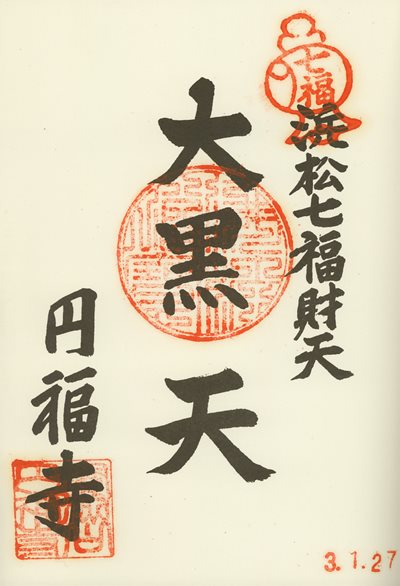 七福
浜松七福財天
大黒天
円福寺
3.1.27